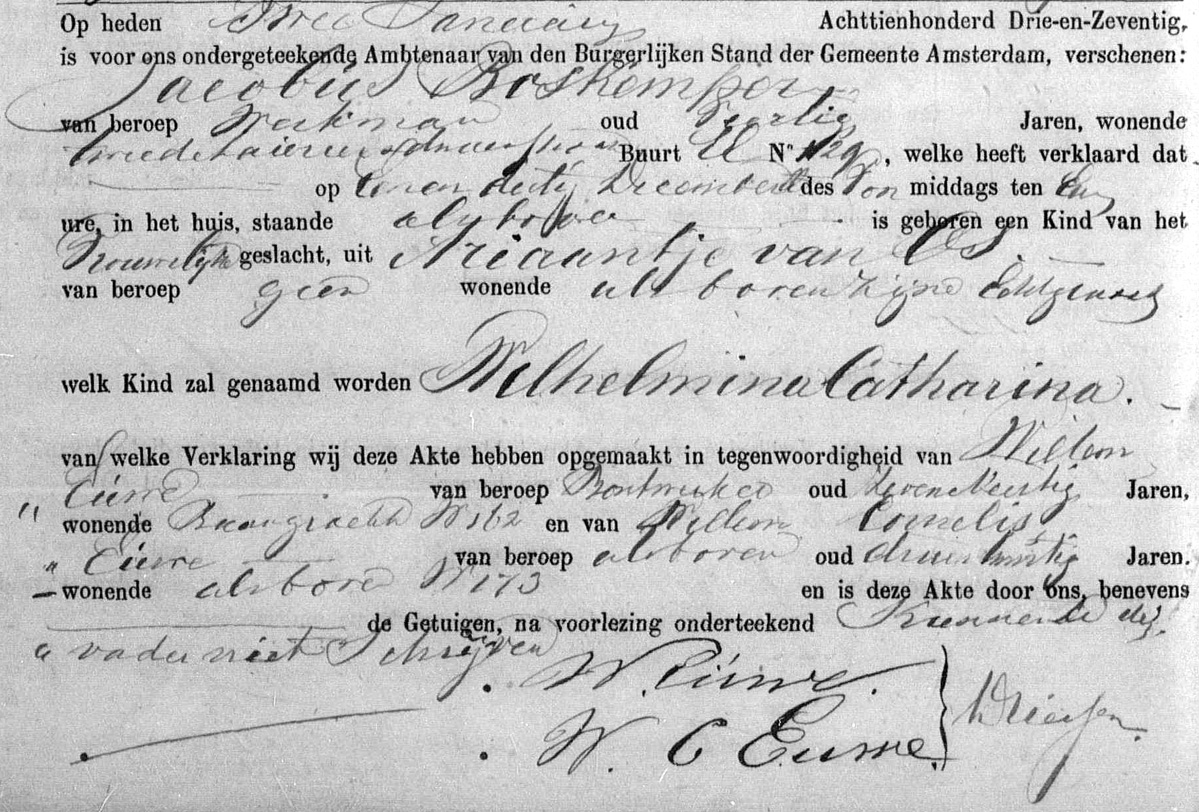 Op heden Twee Januarij Achttienhonderd Drie-en-Zeventig,
is voor ons ondergeteekende Ambtenaar van den Burgerlijken Stand der Gemeente Amsterdam, verschenen:
Jacobus Boskemper
van beroep Werkman oud Veertig Jaren, wonende
Buurt U N° 129, welke heeft verklaard dat
op Eenen dertig December des Voormiddags ten Een
ure, in het huis, staande als boven is geboren een Kind van het
Vrouwelijk geslacht, uit Ariaantje van Os.
van beroep geen wonende als boven zijne Echtgenoot
welk Kind zal genaamd worden Wilhelmina Catharina.
van welke Verklaring wij deze Akte hebben opgemaakt in tegenwoordigheid van Willem
" Euwe van beroep oud Jaren,
wonende Baangracht W 162 en van Willem Cornelis
" Euwe van beroep als boven oud Jaren.
wonende als boven W 173 en is deze Akte door ons, benevens
de Getuigen, na voorlezing onderteekend Kunnende de
" vader niet Schrijven
W. Euwe.
W C Euwe.